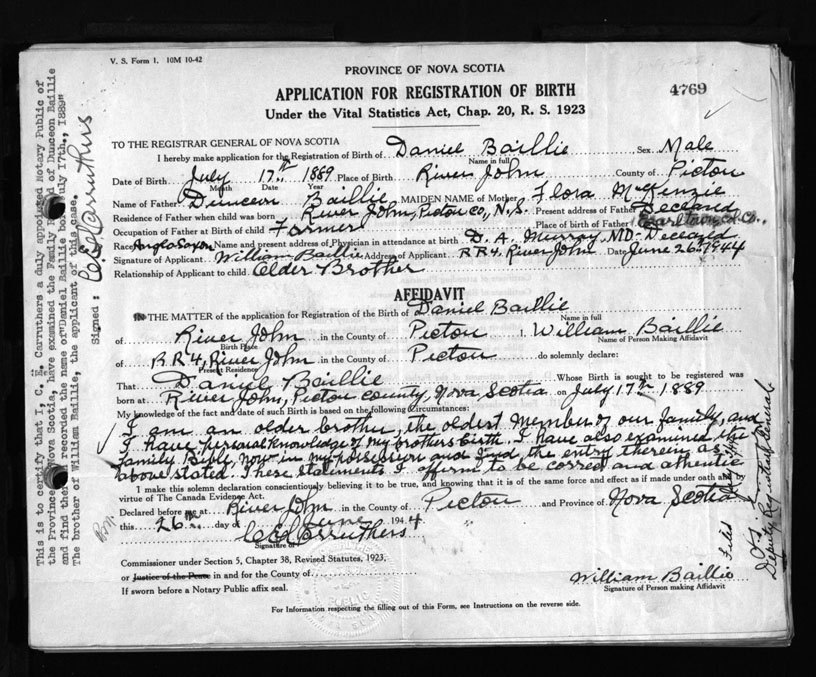 V. S. Form 1. 10M 10-42
PROVINCE OF NOVA SCOTIA
APPLICATION FOR REGISTRATION OF BIRTH
4769
Under the Vital Statistics Act, Chap. 20, R. S. 1923
TO THE REGISTRAR GENERAL OF NOVA SCOTIA
I hereby make application for the Registration of Birth of Daniel Baillie Sex Male
Name in full
Date of Birth July 17th 1889 Place of Birth River John County of Pictou
Month Date Year
Name of Father Duncan Baillie MAIDEN NAME of Mother Flora McKenzie
Residence of Father when child was born River John, Pictou Co,, N.S. Present address of Father Deceased
Occupation of Father at Birth of child Farmer Place of birth of Father Earltown Col. Co.
Race Anglo Saxon Name and present address of Physician in attendance at birth D. A. Murray MD - Deceased
Signature of Applicant William Baillie Address of Applicant RR4, River John Date June 26th 1944
Relationship of Applicant to child Elder Brother
AFFIDAVIT
IN THE MATTER of the application for Registration of the Birth of Daniel Baillie
Name in full
of River John in the County of Pictou I, William Baillie
Birth Place Name of Person Making Affidavit
of RR4, River John in the County of Pictou do solemnly declare:
Present Residency
That Daniel Baillie Whose Birth is sought to be registered was
born at River John, Pictou County, Nova Scotia on July 17th 1889
My knowledge of the fact and date of such Birth is based on the following Circumstances:
I am an older brother, the oldest member of our family, and
I have personal knowledge of my brothers birth. I have also examined the
family Bible, now in my possession and find the entry therein as
above stated. These statements I affirm to be correct and authentic
I make this solemn declaration conscientiously believing it to be true, and knowing that it is of the same force and effect as if made under oath and by
virtue of The Canada Evidence Act.
Declared before me at River John in the County of Pictou and Province of Nova Scotia
this 26th day of June 1944
C E Carruthers
Signature of
Commissioner under Section 5, Chapter 38, Revised Statutes, 1923,
or Justice of the Peace in and for the County of
If sworn before a Notary Public affix seal.
William Baillie
Signature of Person making Affidavit
For Information respecting the filling out of this Form, see Instructions on the reverse side.
This is to certify that I, C. E. Carruthers a duly appointed Notary Public of
the Province Nova Scotia, have examined the Family of Duncan Baillie
and find there recorded the name of "Daniel Baillie born July 17th., 1889"
The brother of William Baillie, the applicant of this case.
Signed : C E Carruthers
Deputy Registrar General